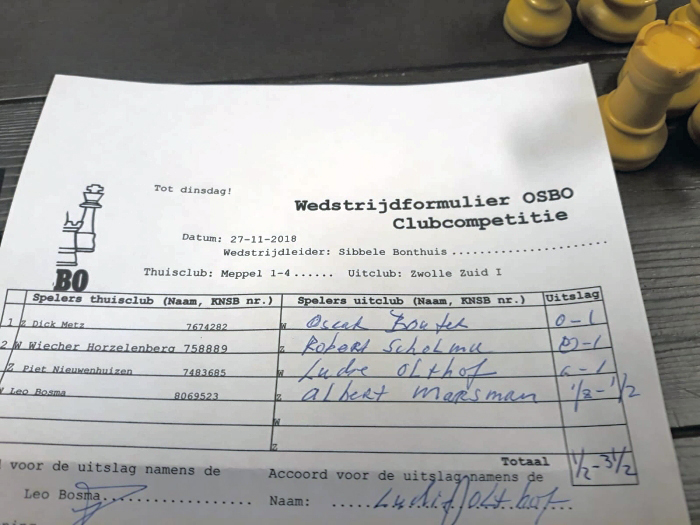 Tot dinsdag!
Wedstrijdformulier OSBO
Clubcompetitie
Datum: 27-11-2018
Wedstrijdleider: Sibbele Bonthuis ........................
Thuisclub: Meppel 1-4...... Uitclub: Zwolle Zuid I
BO
Spelers thuisclub (Naam, KNSB nr.) Spelers uitclub (Naam, KNSB nr.) Uitslag
1 Z Dick Metz 7674282 W Oscar 0-1
2 W Wiecher Horzelenberg 758889 Z Robert Scholma 0-1
Z Piet Nieuwenhuizen 7483685 W Ludre Olthof 0-1
W Leo Bosma 8069523 Z Albert Marsman 1/2-1/2
W
Z
Totaal 1/2-3 1/2
voor de uitslag namens de Accoord voor de uitslag namens de
Leo Bosma.................. Naam: ..... Olthof...